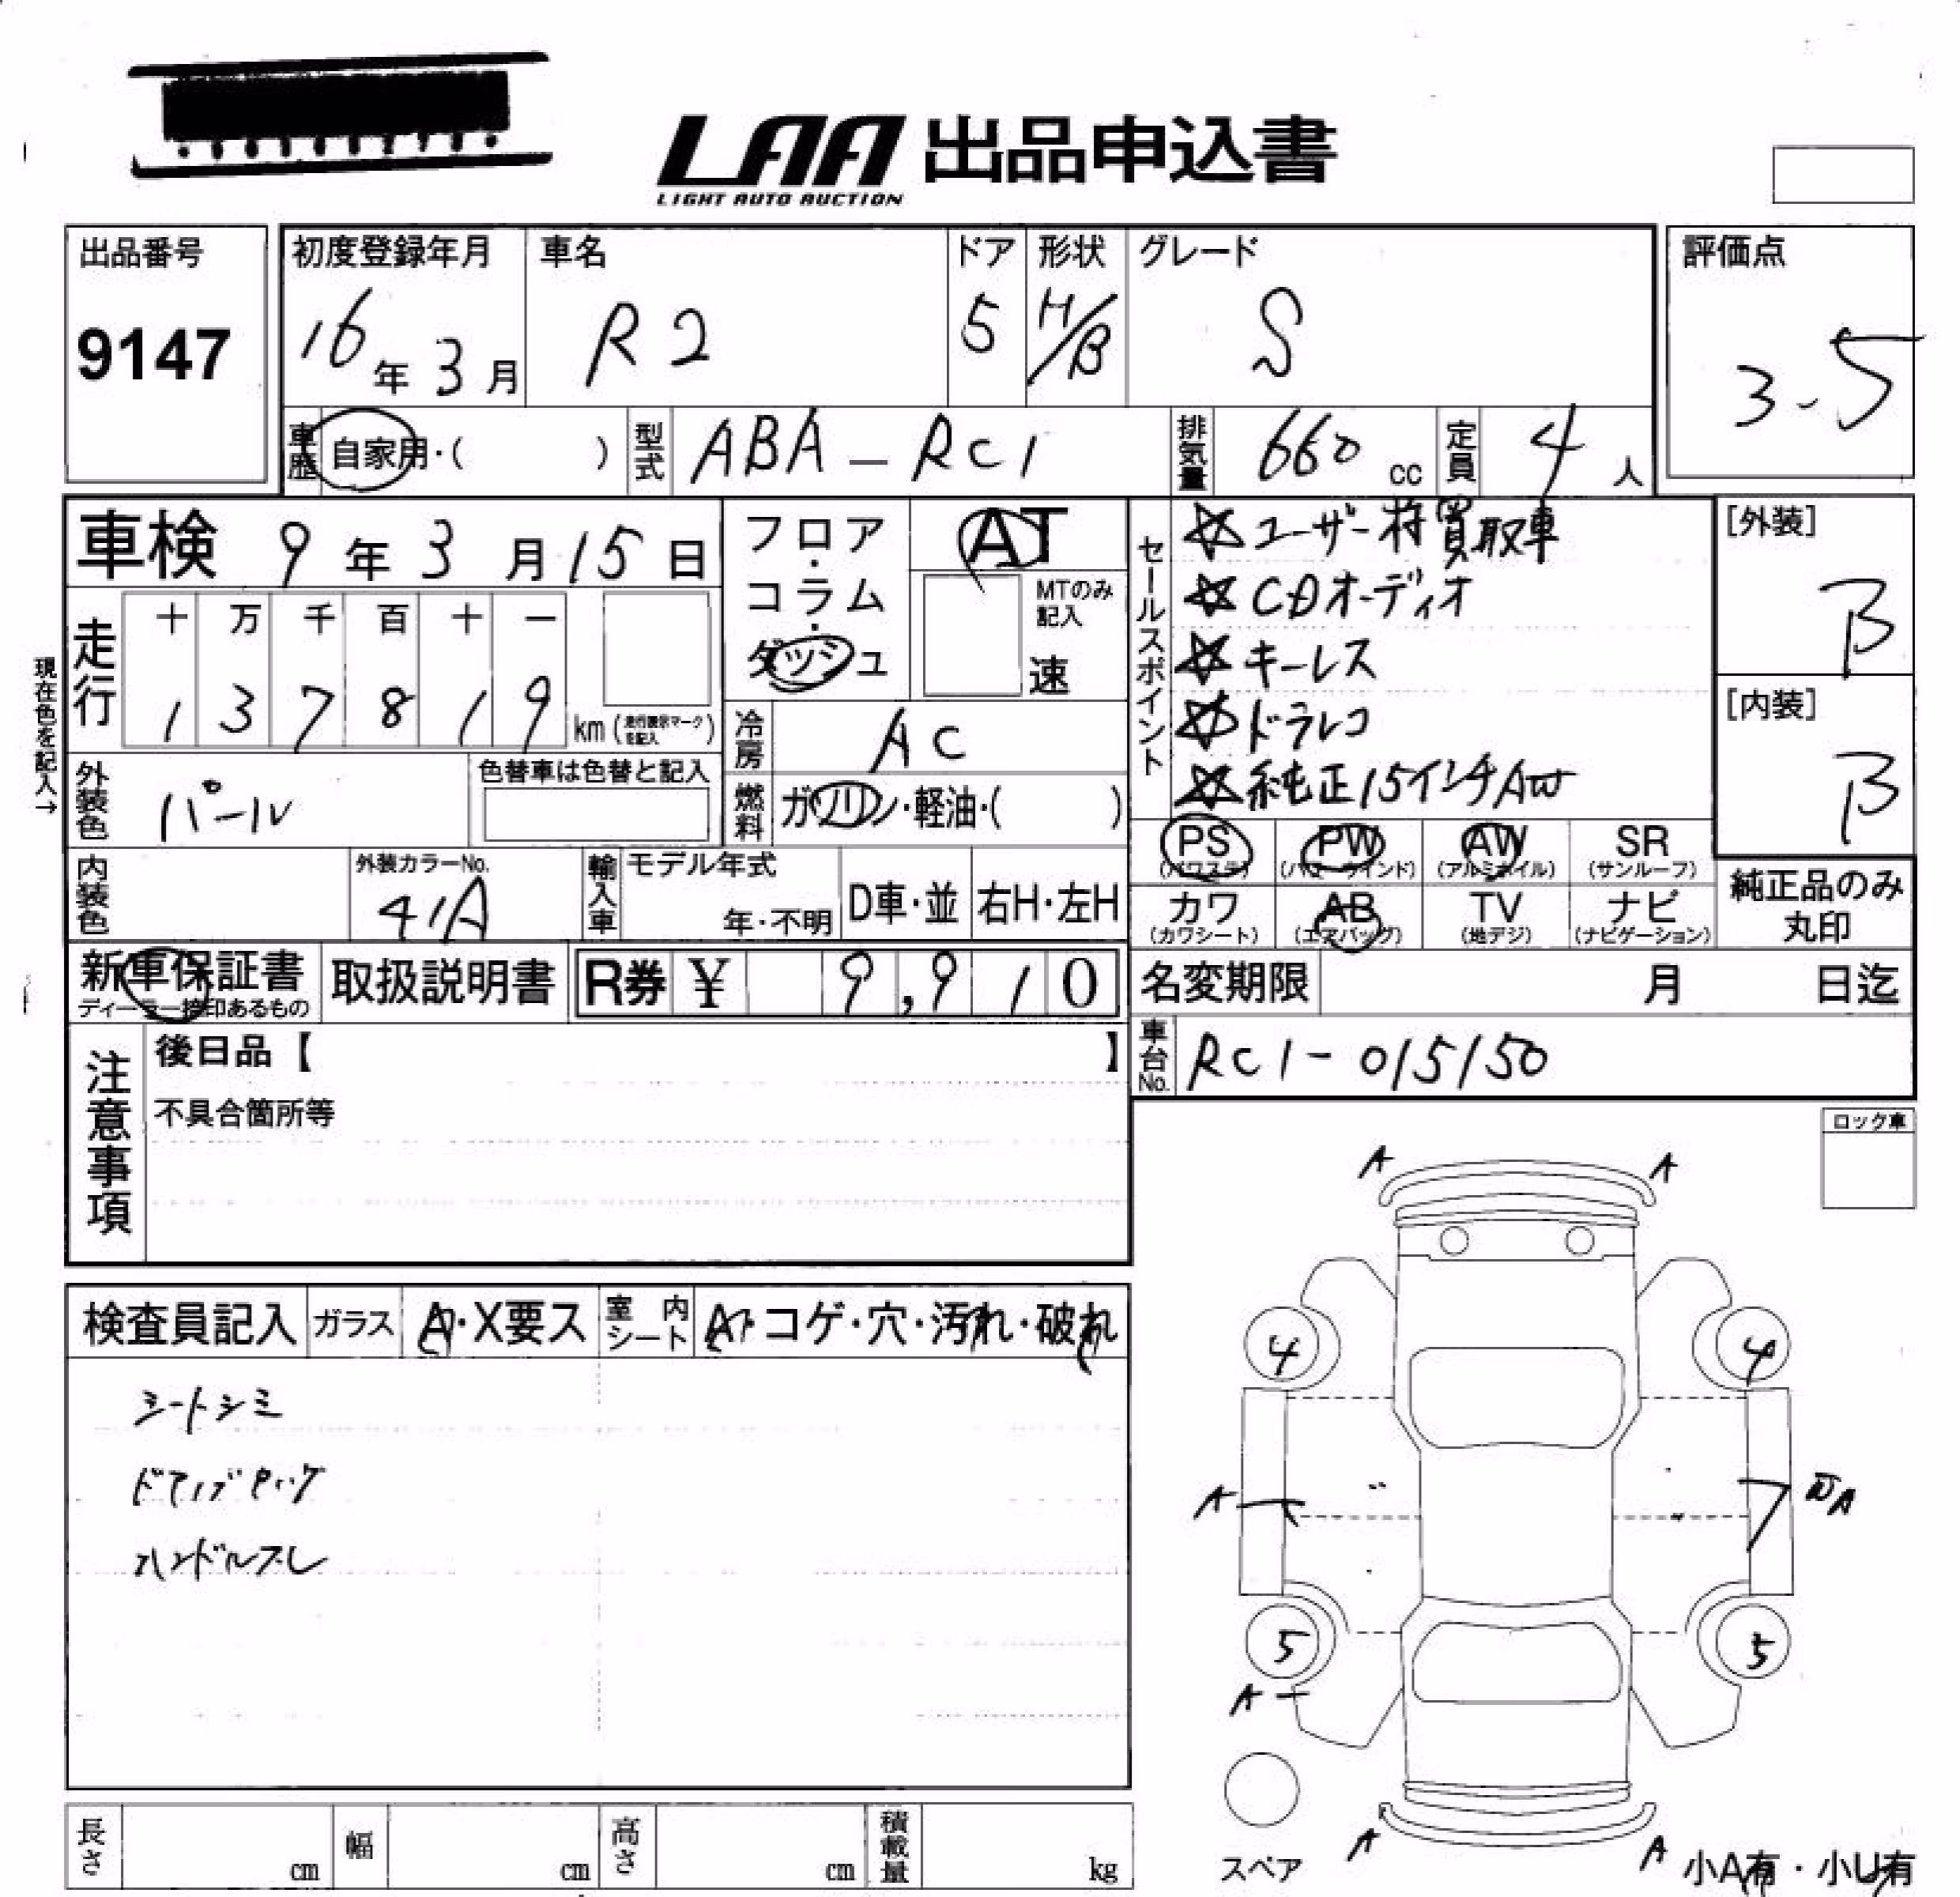 LAA 出品申込書
LIGHT AUTO AUCTION
出品番号
9147
初度登録年月
16年3月
車名
R2
ドア
5
形状
H/B
グレード
S
評価点
3.5
車歴
自家用・( )
型式
ABA-RC1
排気量
660 cc
定員
4人
車検 9年3月15日
フロア・コラム・ダッシュ
AT
MTのみ記入
速
セールスポイント
☆ユーザー様買取車
☆CDオーディオ
☆キーレス
☆ドラレコ
☆純正15インチAW
[外装]
B
[内装]
B
現在色を記入→
走行
十 万 千 百 十 一
1 3 7 8 1 9 km (走行表示マークを記入)
冷房
AC
燃料
ガソリン・軽油・( )
外装色
パール
色替車は色替と記入
内装色
外装カラーNo.
41A
輸入車
モデル年式
年・不明
D車・並
右H・左H
PS (パワステ)
PW (パワーウインド)
AW (アルミホイル)
SR (サンルーフ)
カワ (カワシート)
AB (エアバッグ)
TV (地デジ)
ナビ (ナビゲーション)
純正品のみ丸印
新車保証書
ディーラー捺印あるもの
取扱説明書
R券 ¥ 9,910
名変期限 月 日迄
車台No.
RC1-015150
注意事項
後日品【 】
不具合箇所等
ロック車
検査員記入
ガラス
A・X要ス
室内シート
A・コゲ・穴・汚れ・破れ
シートシミ
ハンドルスレ
A A
4 4
A
A
5 5
A
スペア
A A
小A有・小U有
長さ cm
幅 cm
高さ cm
積載量 kg